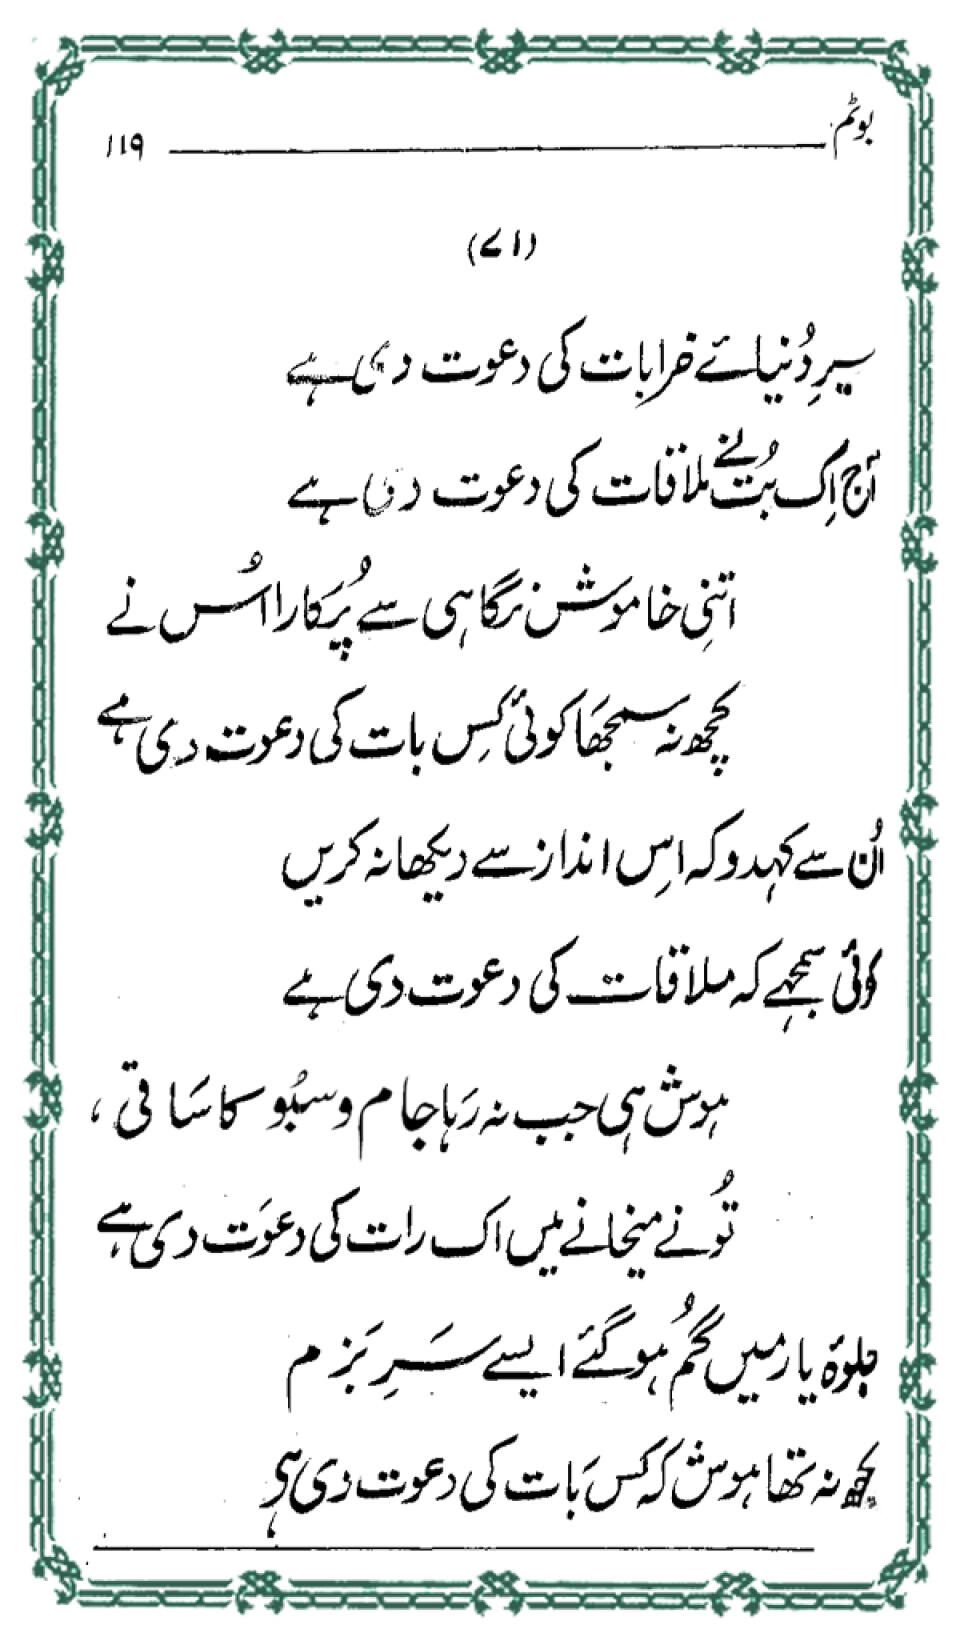 بوٹم ۱۱۹
(۷۱)
سیرِ دُنیائے خرابات کی دعوت دی ہے
آج اِک بُت نے ملاقات کی دعوت دی ہے
اتنی خاموش نگاہی سے پُکارا اُس نے
کچھ نہ سمجھا کوئی کِس بات کی دعوت دی ہے
اُن سے کہدو کہ اِس انداز سے دیکھا نہ کریں
کوئی سمجہے کہ ملاقات کی دعوت دی ہے
ہوش ہی جب نہ رَہا جام و سبُو کا سَاقی ،
تُو نے میخانے میں اک رات کی دعوَت دی ہے
جلوۂ یار میں گُم ہو گئے ایسے سَرِ بَزم
کچھ نہ تھا ہوش کہ کس بَات کی دعوت دی ہی